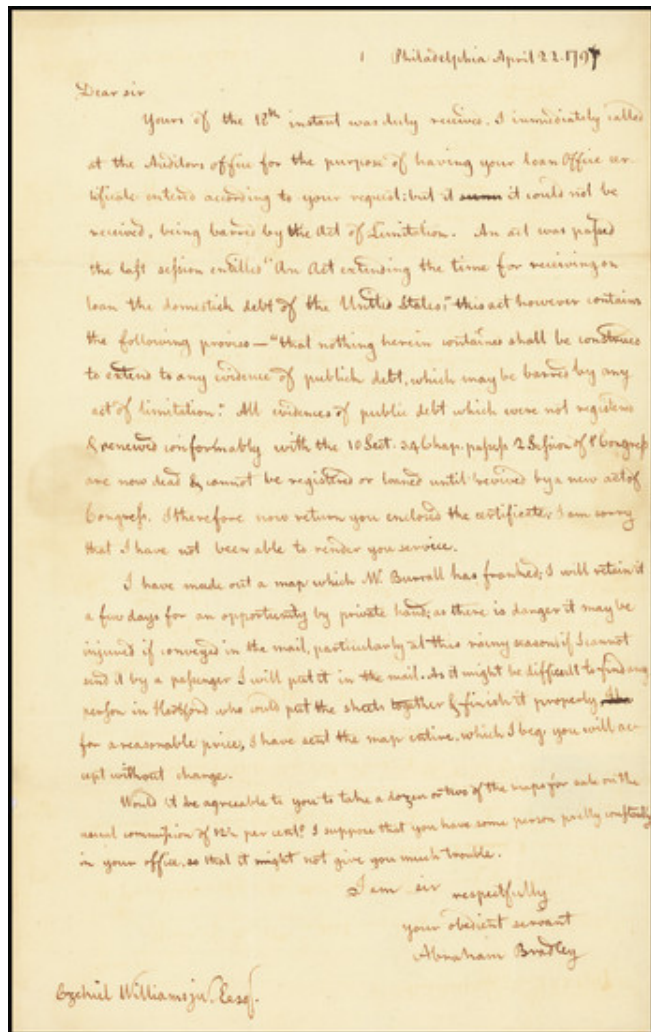 Philadelphia April 22. 1797
Dear sir
Yours of the 12th instant was duly received. I immediately called
at the Auditors office for the purpose of having your loan Office cer-
tificate entered according to your request; but it it could not be
received, being barred by the Act of Limitation. An act was passed
the last session entitled "An Act extending the time for receiving on
loan the domestick debt of the United States;" this act however contains
the following proviso — "that nothing herein contained shall be construed
to extend to any evidence of publick debt, which may be barred by any
act of limitation." All evidences of public debt which were not registered
& renewed conformably with the 10 Sect. 34 Chap. passed 2 Session of Congress
are now dead & cannot be registered or loaned until revived by a new act of
Congress. I therefore now return you enclosed the certificate, I am sorry
that I have not been able to render you service.
I have made out a map which Mr. Burrall has franked; I will retain it
a few days for an opportunity by private hand; as there is danger it may be
injured if conveyed in the mail, particularly at this rainy season; if I cannot
send it by a passenger I will put it in the mail. As it might be difficult to find any
person in Hartford who could put the sheets together & finish it properly
for a reasonable price, I have sent the map entire, which I beg you will ac-
cept without charge.
Would it be agreeable to you to take a dozen or two of the maps for sale on the
usual commission of 12½ per cent? I suppose that you have some person pretty constantly
in your office, so that it might not give you much trouble.
I am sir respectfully
your obedient servant
Abraham Bradley
Ezekiel Williams ju. Esq.